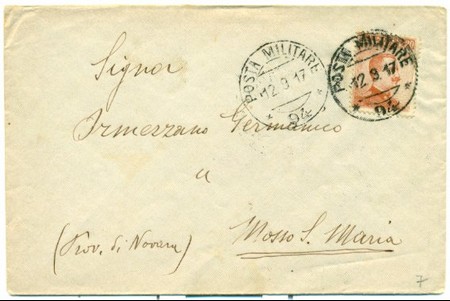 POSTA MILITARE
12.9.17
* 94 *
POSTA MILITARE
12.9.17
* 94 *
Signor
Irmezzano Germanico
a
Mosso S. Maria
(Prov. di Novara)
7